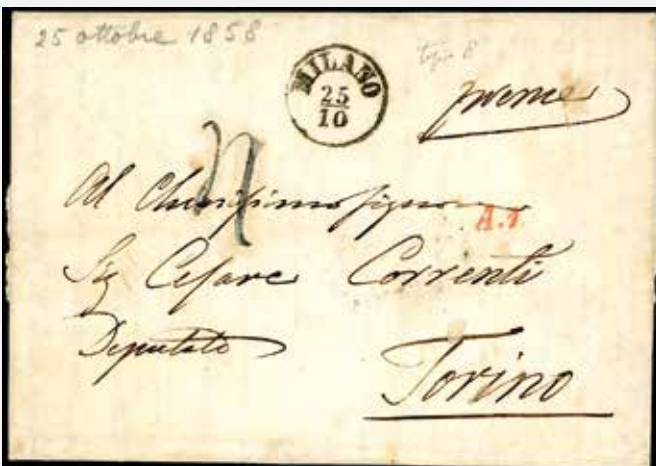 25 ottobre 1858
MILANO
25
10
tipo 8
preme
Al Chiarissimo Signor
Sig Cesare Correnti
Deputato
Torino